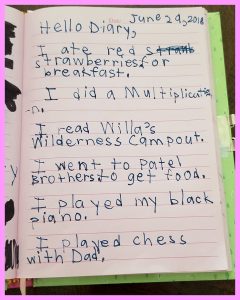 June 29, 2018
Hello Diary,
I ate red
strawberries for
breakfast.
I did a Multiplicatio
-n.
I read Willa's
Wilderness Campout.
I went to Patel
Brothers to get food.
I played my black
piano.
I played chess
with Dad.